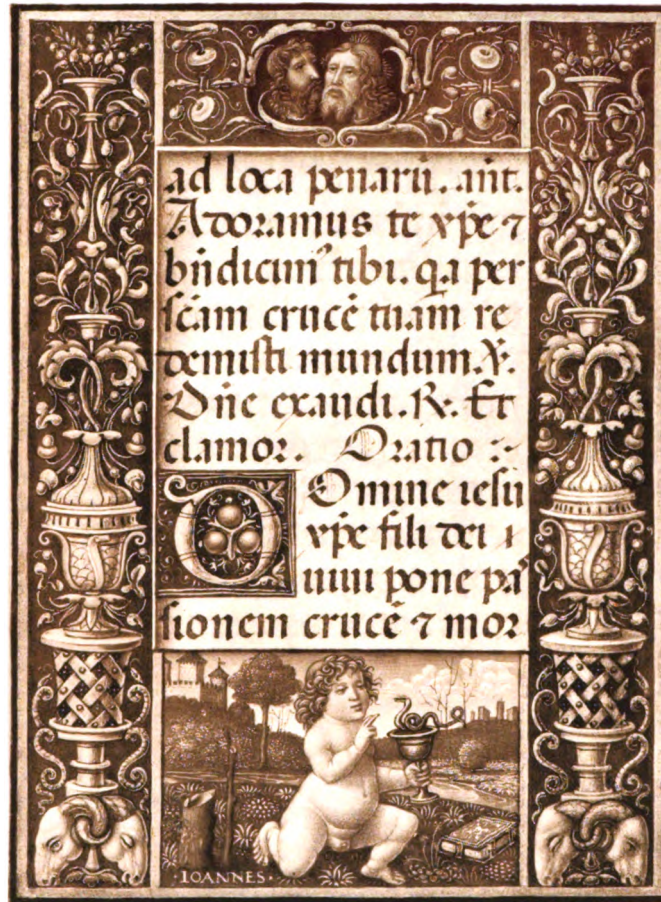 ad loca penarū. añt.
Adoramus te xp̄e ⁊
bñdicim᾽ tibi. q.a per
sc̄am crucē tuam re
demisti mundum. ℣.
Dñe exaudi. ℟. Et
clamor. Oratio :~
DOmine iesu
xp̄e fili dei i
uiui pone pas᾽
sionem crucē ⁊ mor
·IOANNES·